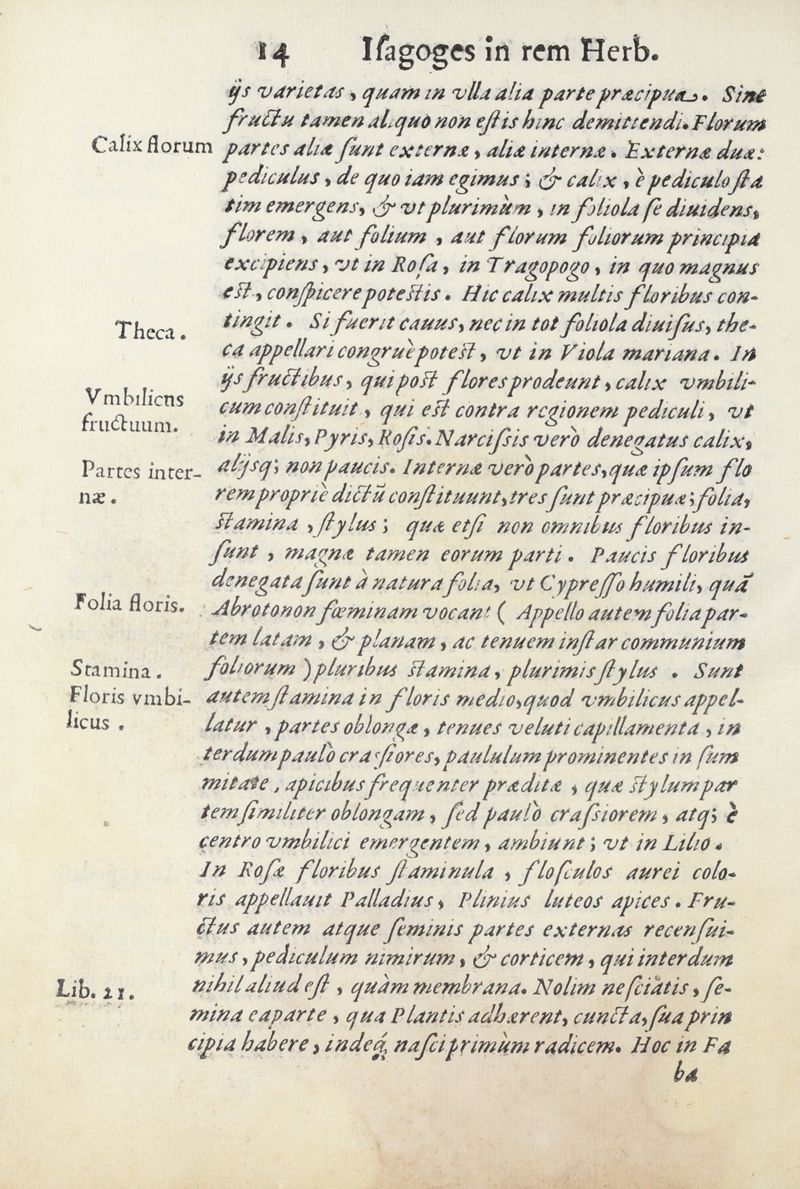 14 Iſagoges in rem Herb.
ijs varietas, quam in vlla alia parte præcipua. Sine
fructu tamen aliquo non eſtis hinc demittendi. Florum
Calix florum
partes aliæ ſunt externæ, aliæ internæ. Externæ duæ:
pediculus, de quo iam egimus; & calix, è pediculo ſta
tim emergens, & vt plurimùm, in foliola ſe diuidens,
florem, aut folium, aut florum foliorum principia
excipiens, vt in Roſa, in Tragopogo, in quo magnus
eſt, conſpicere poteſtis. Hic calix multis floribus con-
Theca.
tingit. Si fuerit cauus, nec in tot foliola diuiſus, the-
ca appellari congruè poteſt, vt in Viola mariana. In
ijs fructibus, qui poſt flores prodeunt, calix vmbili-
Vmbilicus
fructuum.
cum conſtituit, qui eſt contra regionem pediculi, vt
in Malis, Pyris, Roſis. Narciſsis verò denegatus calix,
Partes inter-
næ.
alijsq; non paucis. Internæ verò partes, quæ ipſum flo
rem propriè dictũ conſtituunt, tres ſunt præcipuæ; folia,
ſtamina, ſtylus; quæ etſi non omnibus floribus in-
ſunt, magnæ tamen eorum parti. Paucis floribus
denegata ſunt à natura folia, vt Cypreſſo humili, quã
Folia floris.
Abrotonon fœminam vocant (Appello autem folia par-
tem latam, & planam, ac tenuem inſtar communium
Stamina.
foliorum) pluribus ſtamina, plurimis ſtylus. Sunt
Floris vmbi-
licus.
autem ſtamina in floris medio, quod vmbilicus appel-
latur, partes oblongæ, tenues veluti capillamenta, in
terdum paulò craſſiores, paululum prominentes in ſum
mitate, apicibus frequenter præditæ, quæ ſtylum par
tem ſimiliter oblongam, ſed paulò craſsiorem, atq; è
centro vmbilici emergentem, ambiunt; vt in Lilio.
In Roſæ floribus ſtaminula, floſculos aurei colo-
ris appellauit Palladius, Plinius luteos apices. Fru-
ctus autem atque ſeminis partes externas recenſui-
mus, pediculum nimirum, & corticem, qui interdum
Lib. 21.
nihil aliud eſt, quàm membrana. Nolim neſciatis, ſe-
mina ea parte, qua Plantis adhærent, cuncta, ſua prin
cipia habere, indeq; naſci primùm radicem. Hoc in Fa
ba